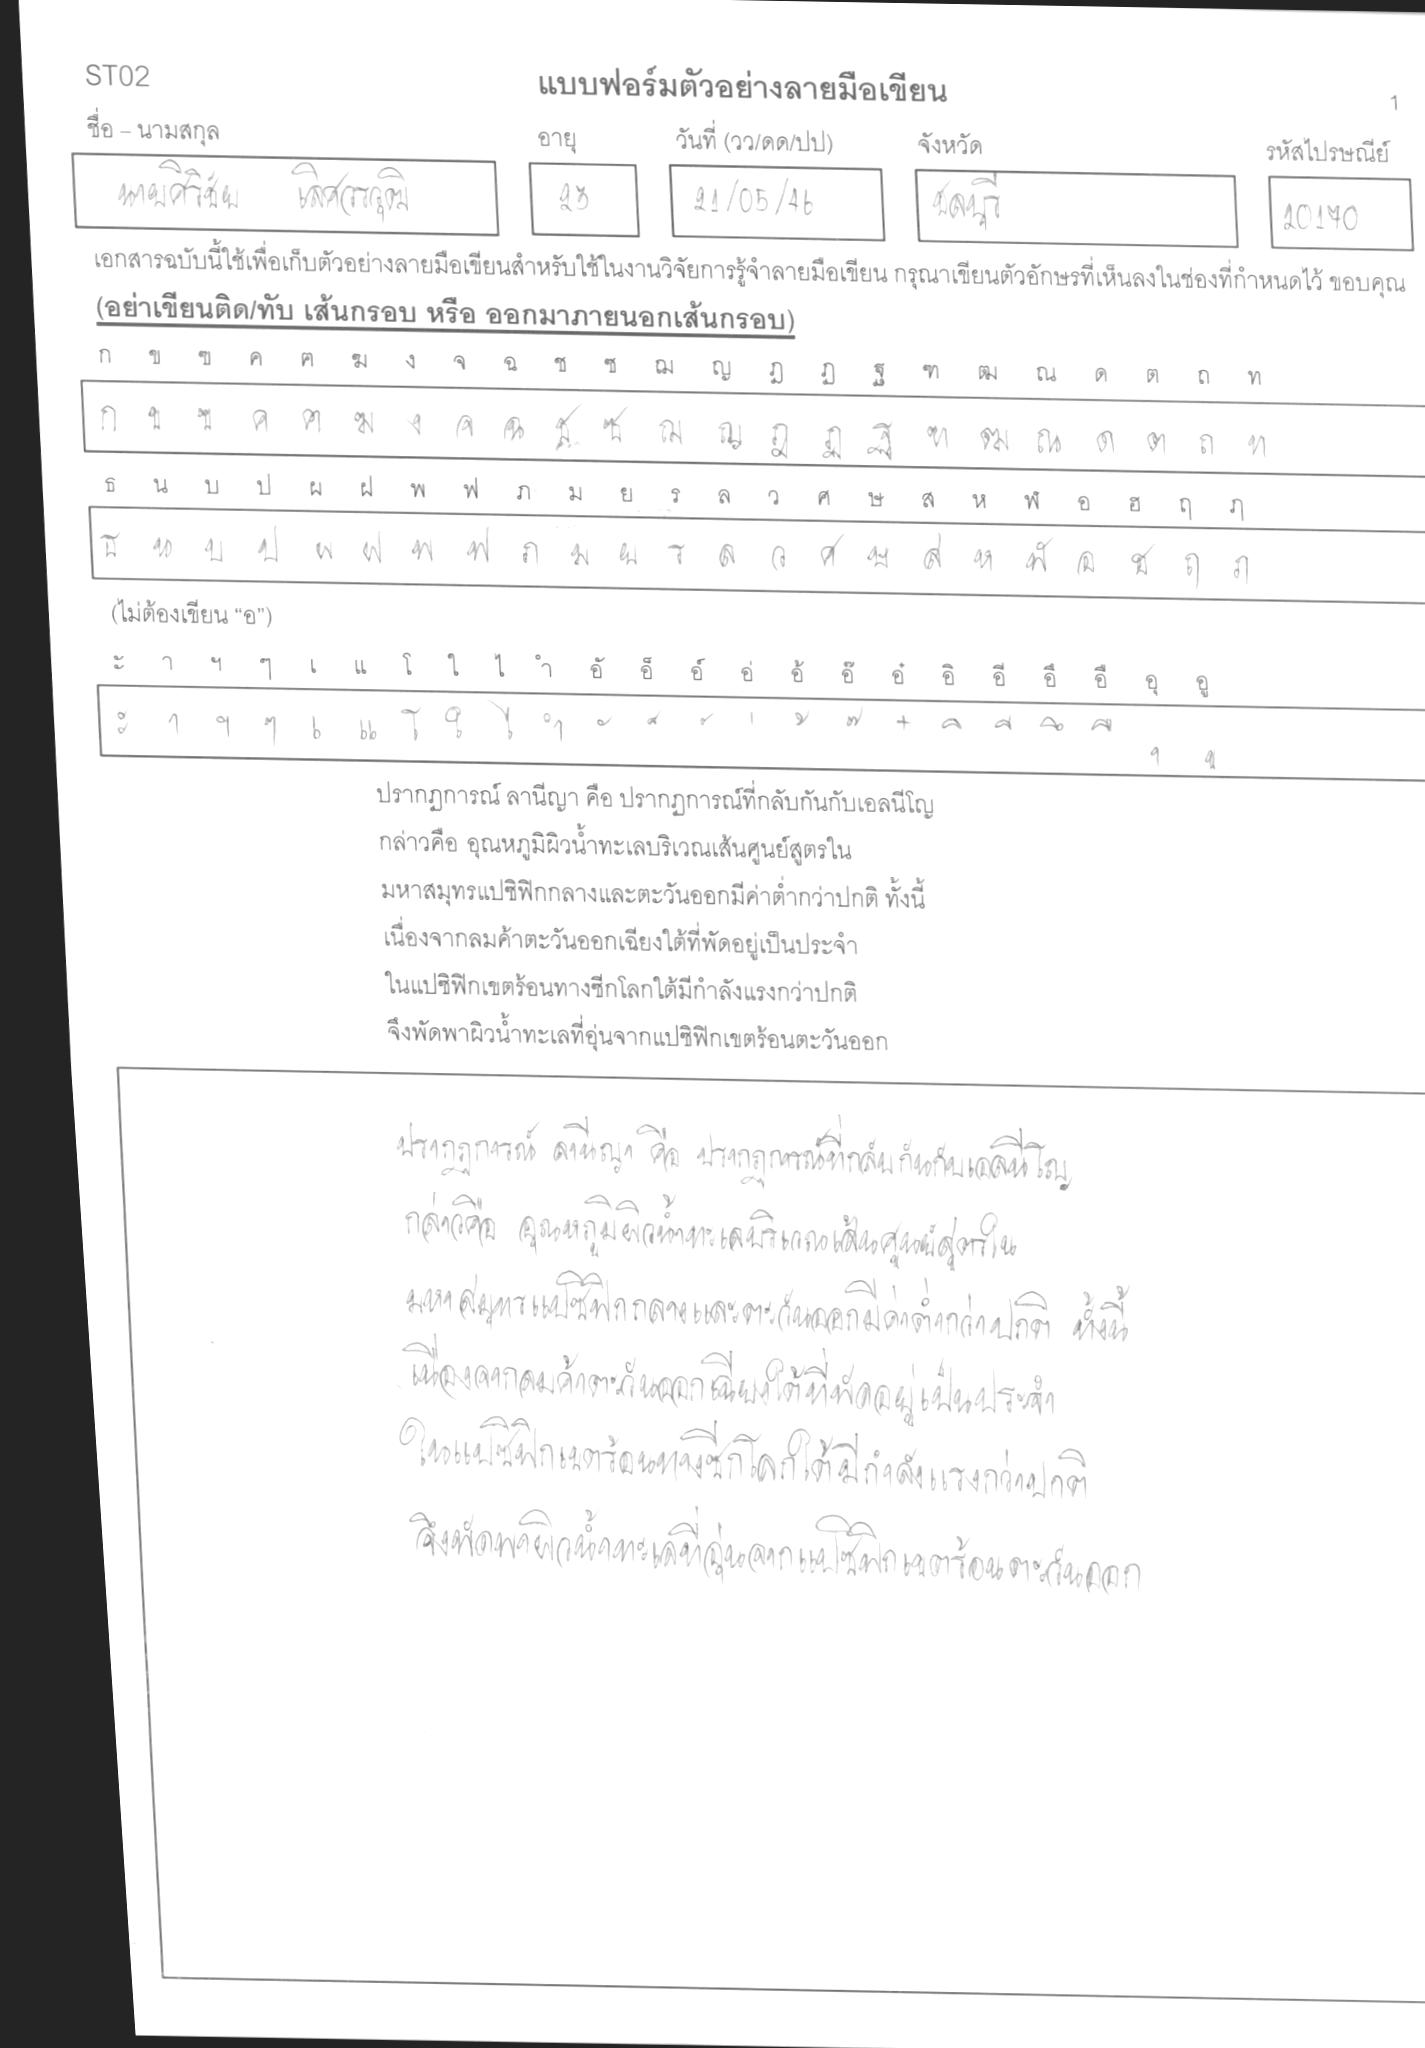 ST02
แบบฟอร์มตัวอย่างลายมือเขียน
1
ชื่อ – นามสกุล อายุ วันที่ (วว/ดด/ปป) จังหวัด รหัสไปรษณีย์
นายศิริชัย 23 21/05/46 ชลบุรี 20170
เอกสารฉบับนี้ใช้เพื่อเก็บตัวอย่างลายมือเขียนสำหรับใช้ในงานวิจัยการรู้จำลายมือเขียน กรุณาเขียนตัวอักษรที่เห็นลงในช่องที่กำหนดไว้ ขอบคุณ
(อย่าเขียนติด/ทับ เส้นกรอบ หรือ ออกมาภายนอกเส้นกรอบ)
ก ข ฃ ค ฅ ฆ ง จ ฉ ช ซ ฌ ญ ฎ ฏ ฐ ฑ ฒ ณ ด ต ถ ท
ก ข ฃ ค ฅ ฆ ง จ ฉ ช ซ ฌ ญ ฎ ฏ ฐ ฑ ฒ ณ ด ต ถ ท
ธ น บ ป ผ ฝ พ ฟ ภ ม ย ร ล ว ศ ษ ส ห ฬ อ ฮ ฤ ฦ
ธ น บ ป ผ ฝ พ ฟ ภ ม ย ร ล ว ศ ษ ส ห ฬ อ ฮ ฤ ฦ
(ไม่ต้องเขียน “อ”)
ะ า ฯ ๆ เ แ โ ใ ไ ำ อั อ็ อ์ อ่ อ้ อ๊ อ๋ อิ อี อึ อื อุ อู
ะ า ฯ ๆ เ แ โ ใ ไ ำ ั ็ ์ ่ ้ ๊ ๋ ิ ี ึ ื ุ ู
ปรากฏการณ์ ลานีญา คือ ปรากฏการณ์ที่กลับกันกับเอลนีโญ
กล่าวคือ อุณหภูมิผิวน้ำทะเลบริเวณเส้นศูนย์สูตรใน
มหาสมุทรแปซิฟิกกลางและตะวันออกมีค่าต่ำกว่าปกติ ทั้งนี้
เนื่องจากลมค้าตะวันออกเฉียงใต้ที่พัดอยู่เป็นประจำ
ในแปซิฟิกเขตร้อนทางซีกโลกใต้มีกำลังแรงกว่าปกติ
จึงพัดพาผิวน้ำทะเลที่อุ่นจากแปซิฟิกเขตร้อนตะวันออก
ปรากฏการณ์ ลานีญา คือ ปรากฏการณ์ที่กลับกันกับเอลนีโญ
กล่าวคือ อุณหภูมิผิวน้ำทะเลบริเวณเส้นศูนย์สูตรใน
มหาสมุทรแปซิฟิกกลางและตะวันออกมีค่าต่ำกว่าปกติ ทั้งนี้
เนื่องจากลมค้าตะวันออกเฉียงใต้ที่พัดอยู่เป็นประจำ
ในแปซิฟิกเขตร้อนทางซีกโลกใต้มีกำลังแรงกว่าปกติ
จึงพัดพาผิวน้ำทะเลที่อุ่นจากแปซิฟิกเขตร้อนตะวันออก